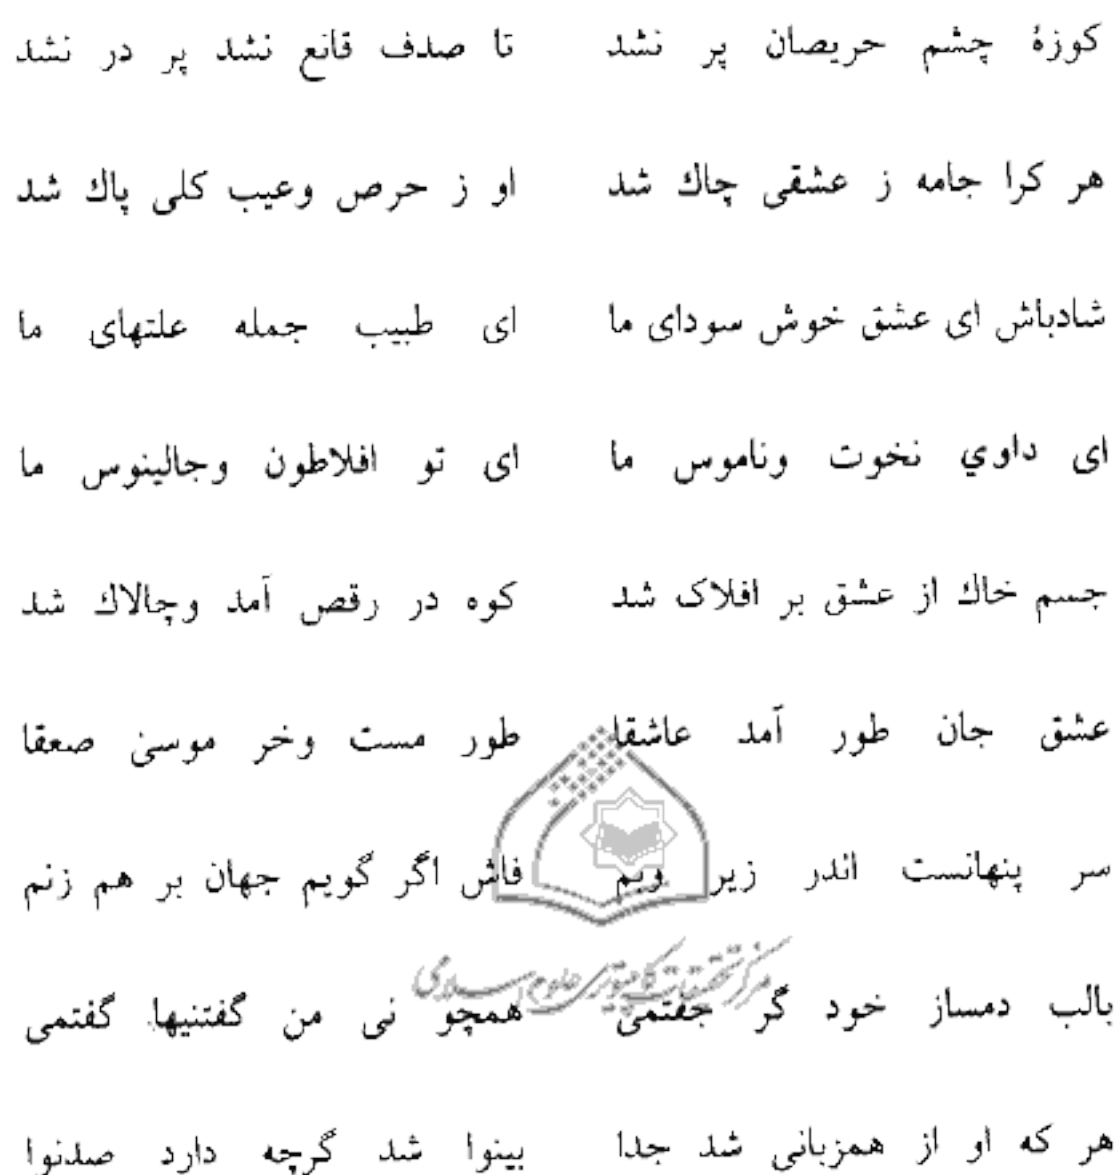 کوزهٔ چشم حریصان پر نشد تا صدف قانع نشد پر در نشد
هر کرا جامه ز عشقی چاك شد او ز حرص وعیب کلی پاك شد
شادباش ای عشق خوش سودای ما ای طبیب جمله علتهای ما
ای داوي نخوت وناموس ما ای تو افلاطون وجالینوس ما
جسم خاك از عشق بر افلاک شد کوه در رقص آمد وچالاك شد
عشق جان طور آمد عاشقا طور مست وخر موسیٰ صعقا
سر پنهانست اندر زیر وبم فاش اگر گویم جهان بر هم زنم
مرکز تحقیقات کامپیوتری علوم اسلامی
بالب دمساز خود گر جفتمی همچو نی من گفتنیها گفتمی
هر که او از همزبانی شد جدا بینوا شد گرچه دارد صدنوا